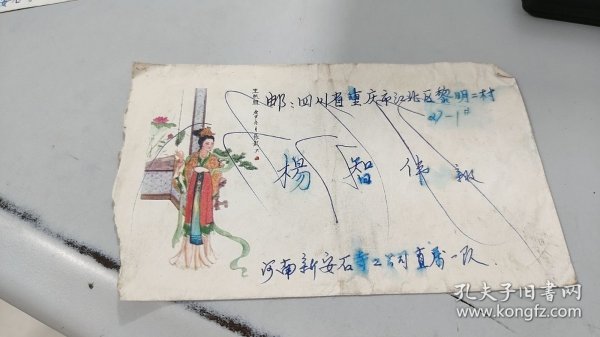 邮：四川省重庆市江北区黎明二村
27-1#
楊智伟 
河南新安石寺工司直属一队
孔夫子旧书网
www.kongfz.com